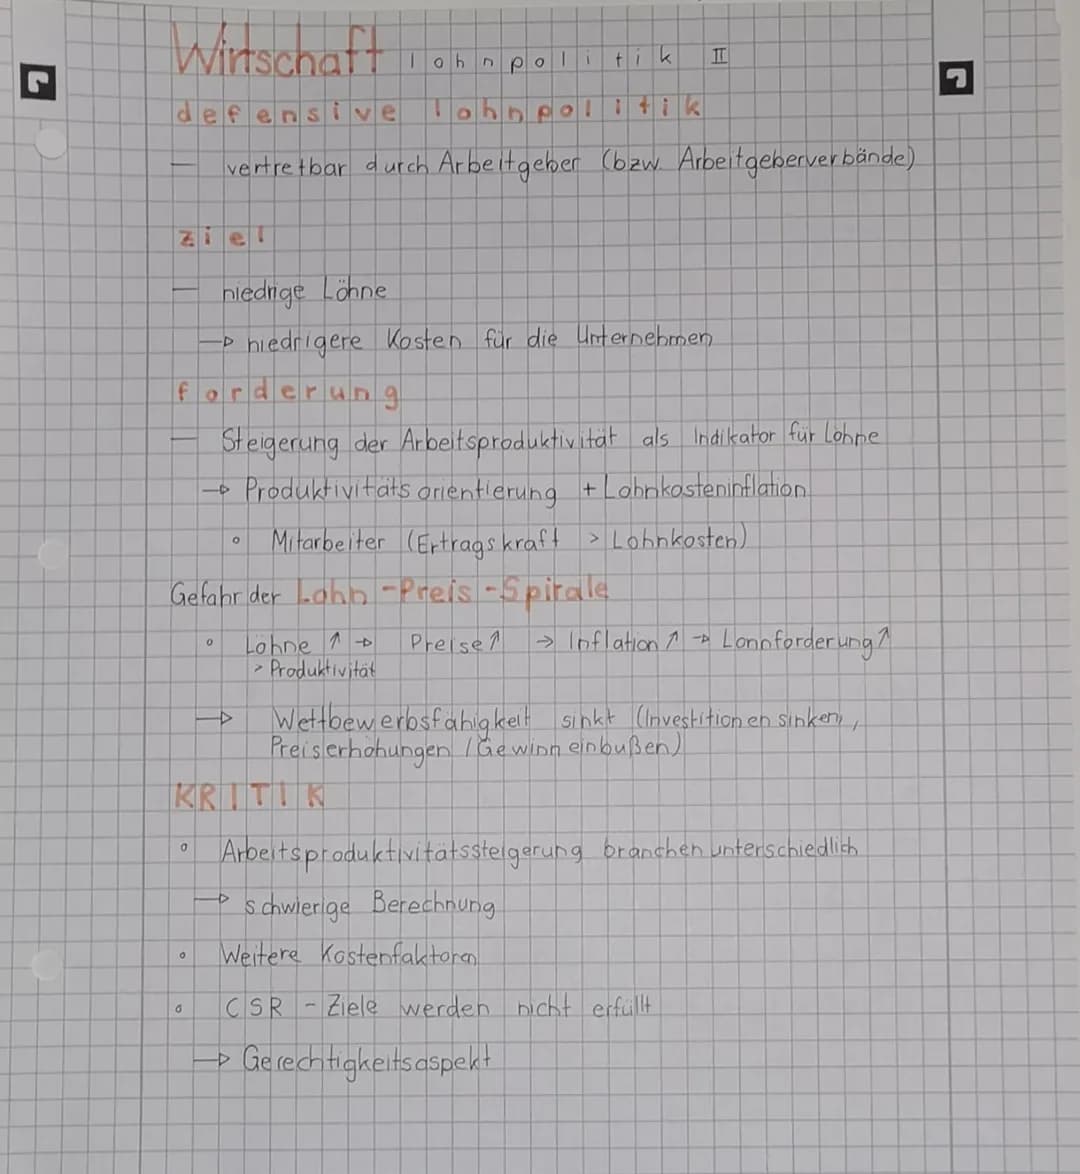 Wirtschaft lohnpolitik II
defensive lohnpolitik
— vertretbar durch Arbeitgeber (bzw. Arbeitgeberverbände)
ziel
— niedrige Löhne
→ niedrigere Kosten für die Unternehmen
forderung
— Steigerung der Arbeitsproduktivität als Indikator für Löhne
→ Produktivitätsorientierung + Lohnkosteninflation
° Mitarbeiter (Ertragskraft > Lohnkosten)
Gefahr der Lohn-Preis-Spirale
° Löhne ↑ → Preise ↑ → Inflation ↑ → Lohnforderung ↑
> Produktivität
→ Wettbewerbsfähigkeit sinkt (Investitionen sinken,
Preiserhöhungen / Gewinneinbußen)
KRITIK
° Arbeitsproduktivitätssteigerung branchenunterschiedlich
→ schwierige Berechnung
° Weitere Kostenfaktoren
° CSR - Ziele werden nicht erfüllt
→ Gerechtigkeitsaspekt